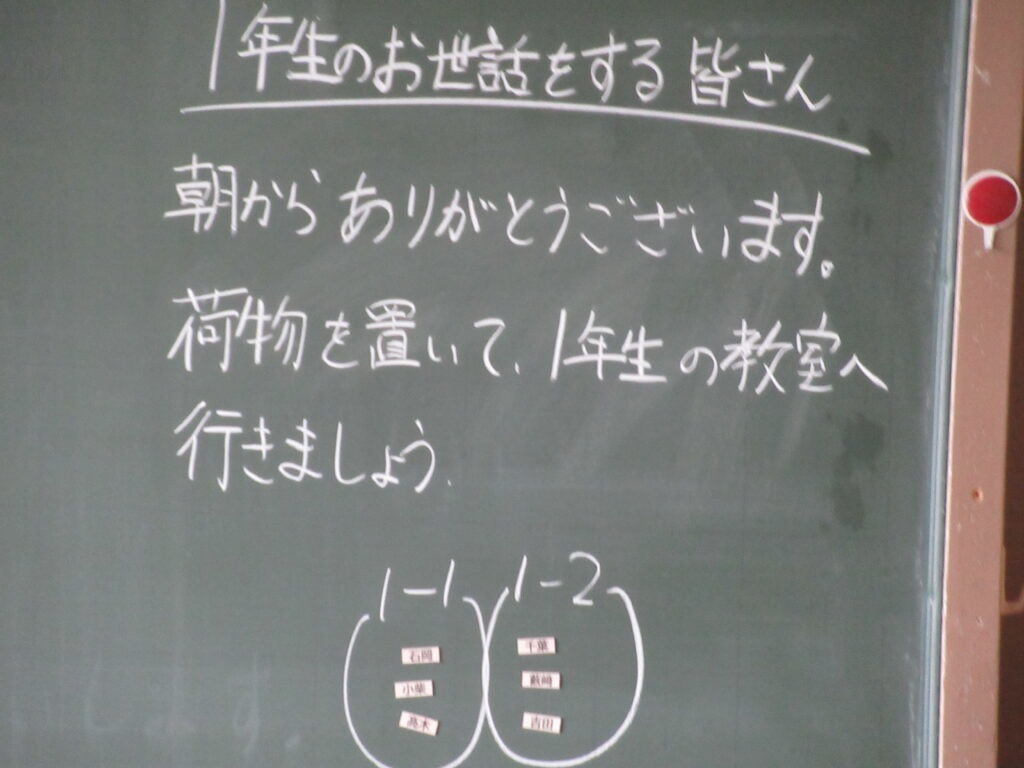 1年生のお世話をする皆さん
朝からありがとうございます。
荷物を置いて、1年生の教室へ
行きましょう。
1-1
石岡
小柴
高木
1-2
千葉
藪崎
吉田